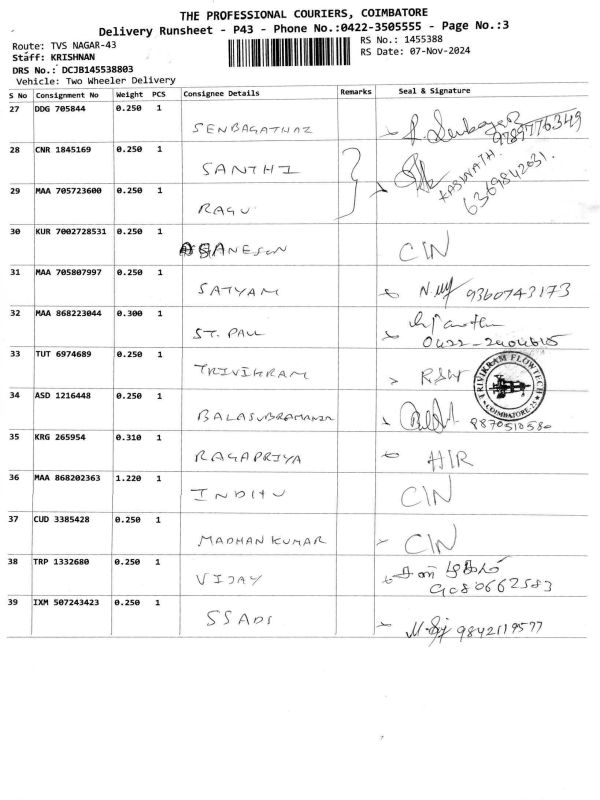 THE PROFESSIONAL COURIERS, COIMBATORE
Delivery Runsheet - P43 - Phone No.:0422-3505555 - Page No.:3
Route: TVS NAGAR-43
RS No.: 1455388
Staff: KRISHNAN
RS Date: 07-Nov-2024
DRS No.: DCJB145538803
Vehicle: Two Wheeler Delivery
S No Consignment No Weight PCS Consignee Details Remarks Seal & Signature
27 DDG 705844 0.250 1
9789776349
28 CNR 1845169 0.250 1
SANTHI
KASWATH.
6369842631.
29 MAA 705723600 0.250 1
RAGU
30 KUR 7002728531 0.250 1
GANESAN CIN
31 MAA 705807997 0.250 1
SATYAM 9360743173
32 MAA 868223044 0.300 1
ST. PAUL
0422-2404615
33 TUT 6974689 0.250 1
TRIVIKRAM
TRIVIKRAM FLOWTECH
COIMBATORE-25
34 ASD 1216448 0.250 1
BALASUBRAMANIAN 9870510580
35 KRG 265954 0.310 1
RAGAPRIYA HIR
36 MAA 868202363 1.220 1
INDHU CIN
37 CUD 3385428 0.250 1
MADHAN KUMAR CIN
38 TRP 1332680 0.250 1
VIJAY 9080662583
39 IXM 507243423 0.250 1
9842119577